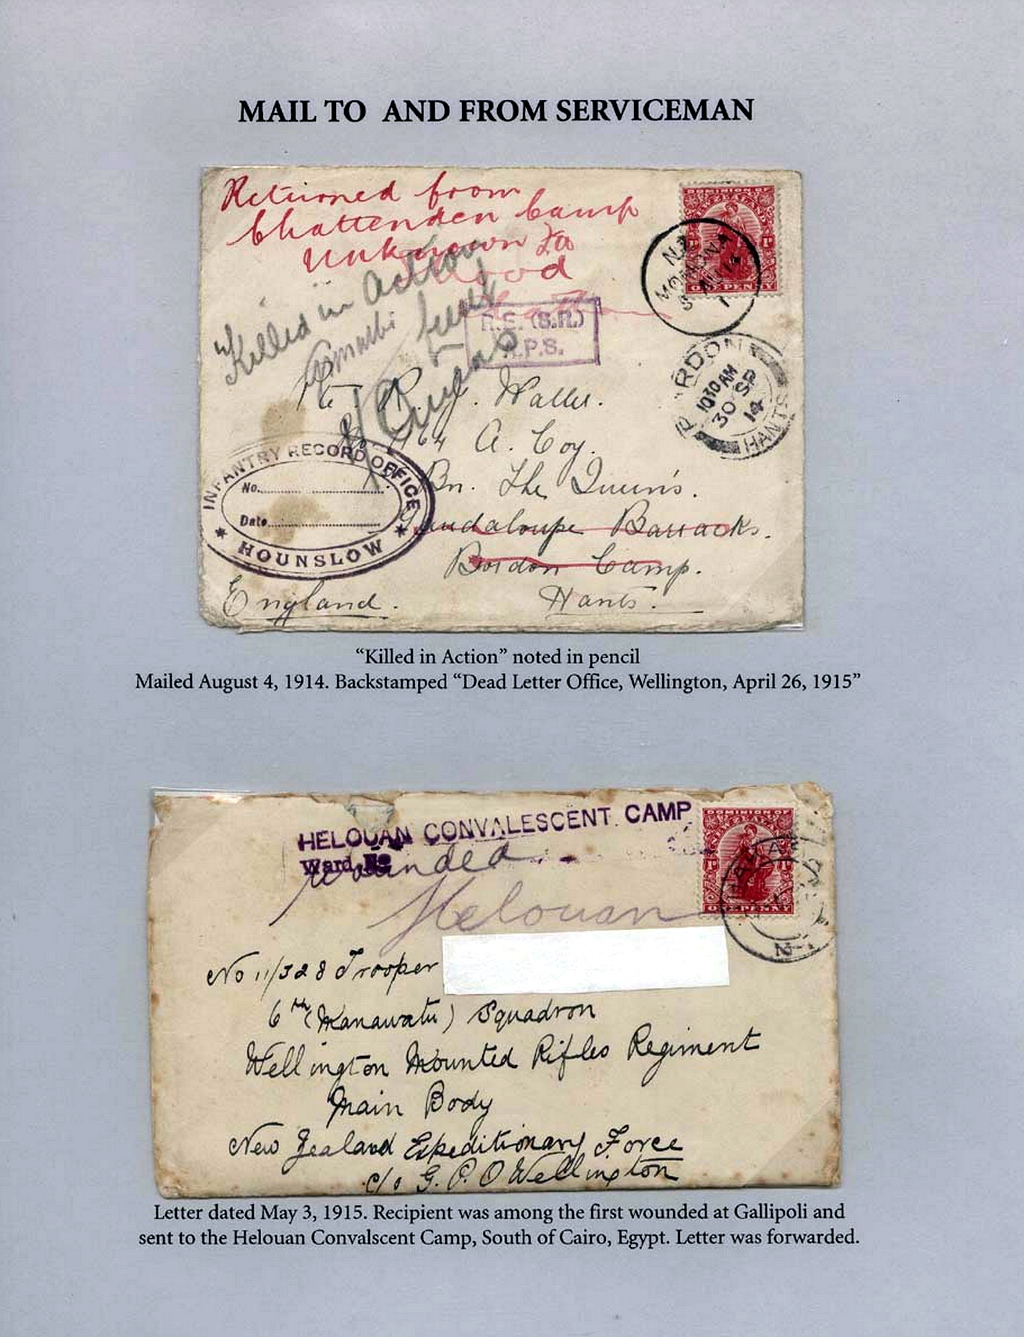 MAIL TO AND FROM SERVICEMAN
Returned from
Chattenden Camp
Unknown
Killed in Action
R.E. (S.R.)
A.P.S.
DOMINION OF
NEW ZEALAND
1d
ONE PENNY
N.Z.
BORDON
10 30 AM
30 SP
14
HANTS
Waller.
A. Coy.
Bn. The Queen's.
Guadaloupe Barracks.
Bordon Camp.
Hants.
England.
INFANTRY RECORD OFFICE
No.
Date
HOUNSLOW
"Killed in Action" noted in pencil
Mailed August 4, 1914. Backstamped "Dead Letter Office, Wellington, April 26, 1915"
HELOUAN CONVALESCENT CAMP
Ward No
wounded
Helouan
DOMINION OF
NEW ZEALAND
ONE PENNY
N-Z
No 11/328 Trooper
6th (Manawatu) Squadron
Wellington Mounted Rifles Regiment
Main Body
New Zealand Expeditionary Force
c/o G.P.O Wellington
Letter dated May 3, 1915. Recipient was among the first wounded at Gallipoli and
sent to the Helouan Convalscent Camp, South of Cairo, Egypt. Letter was forwarded.